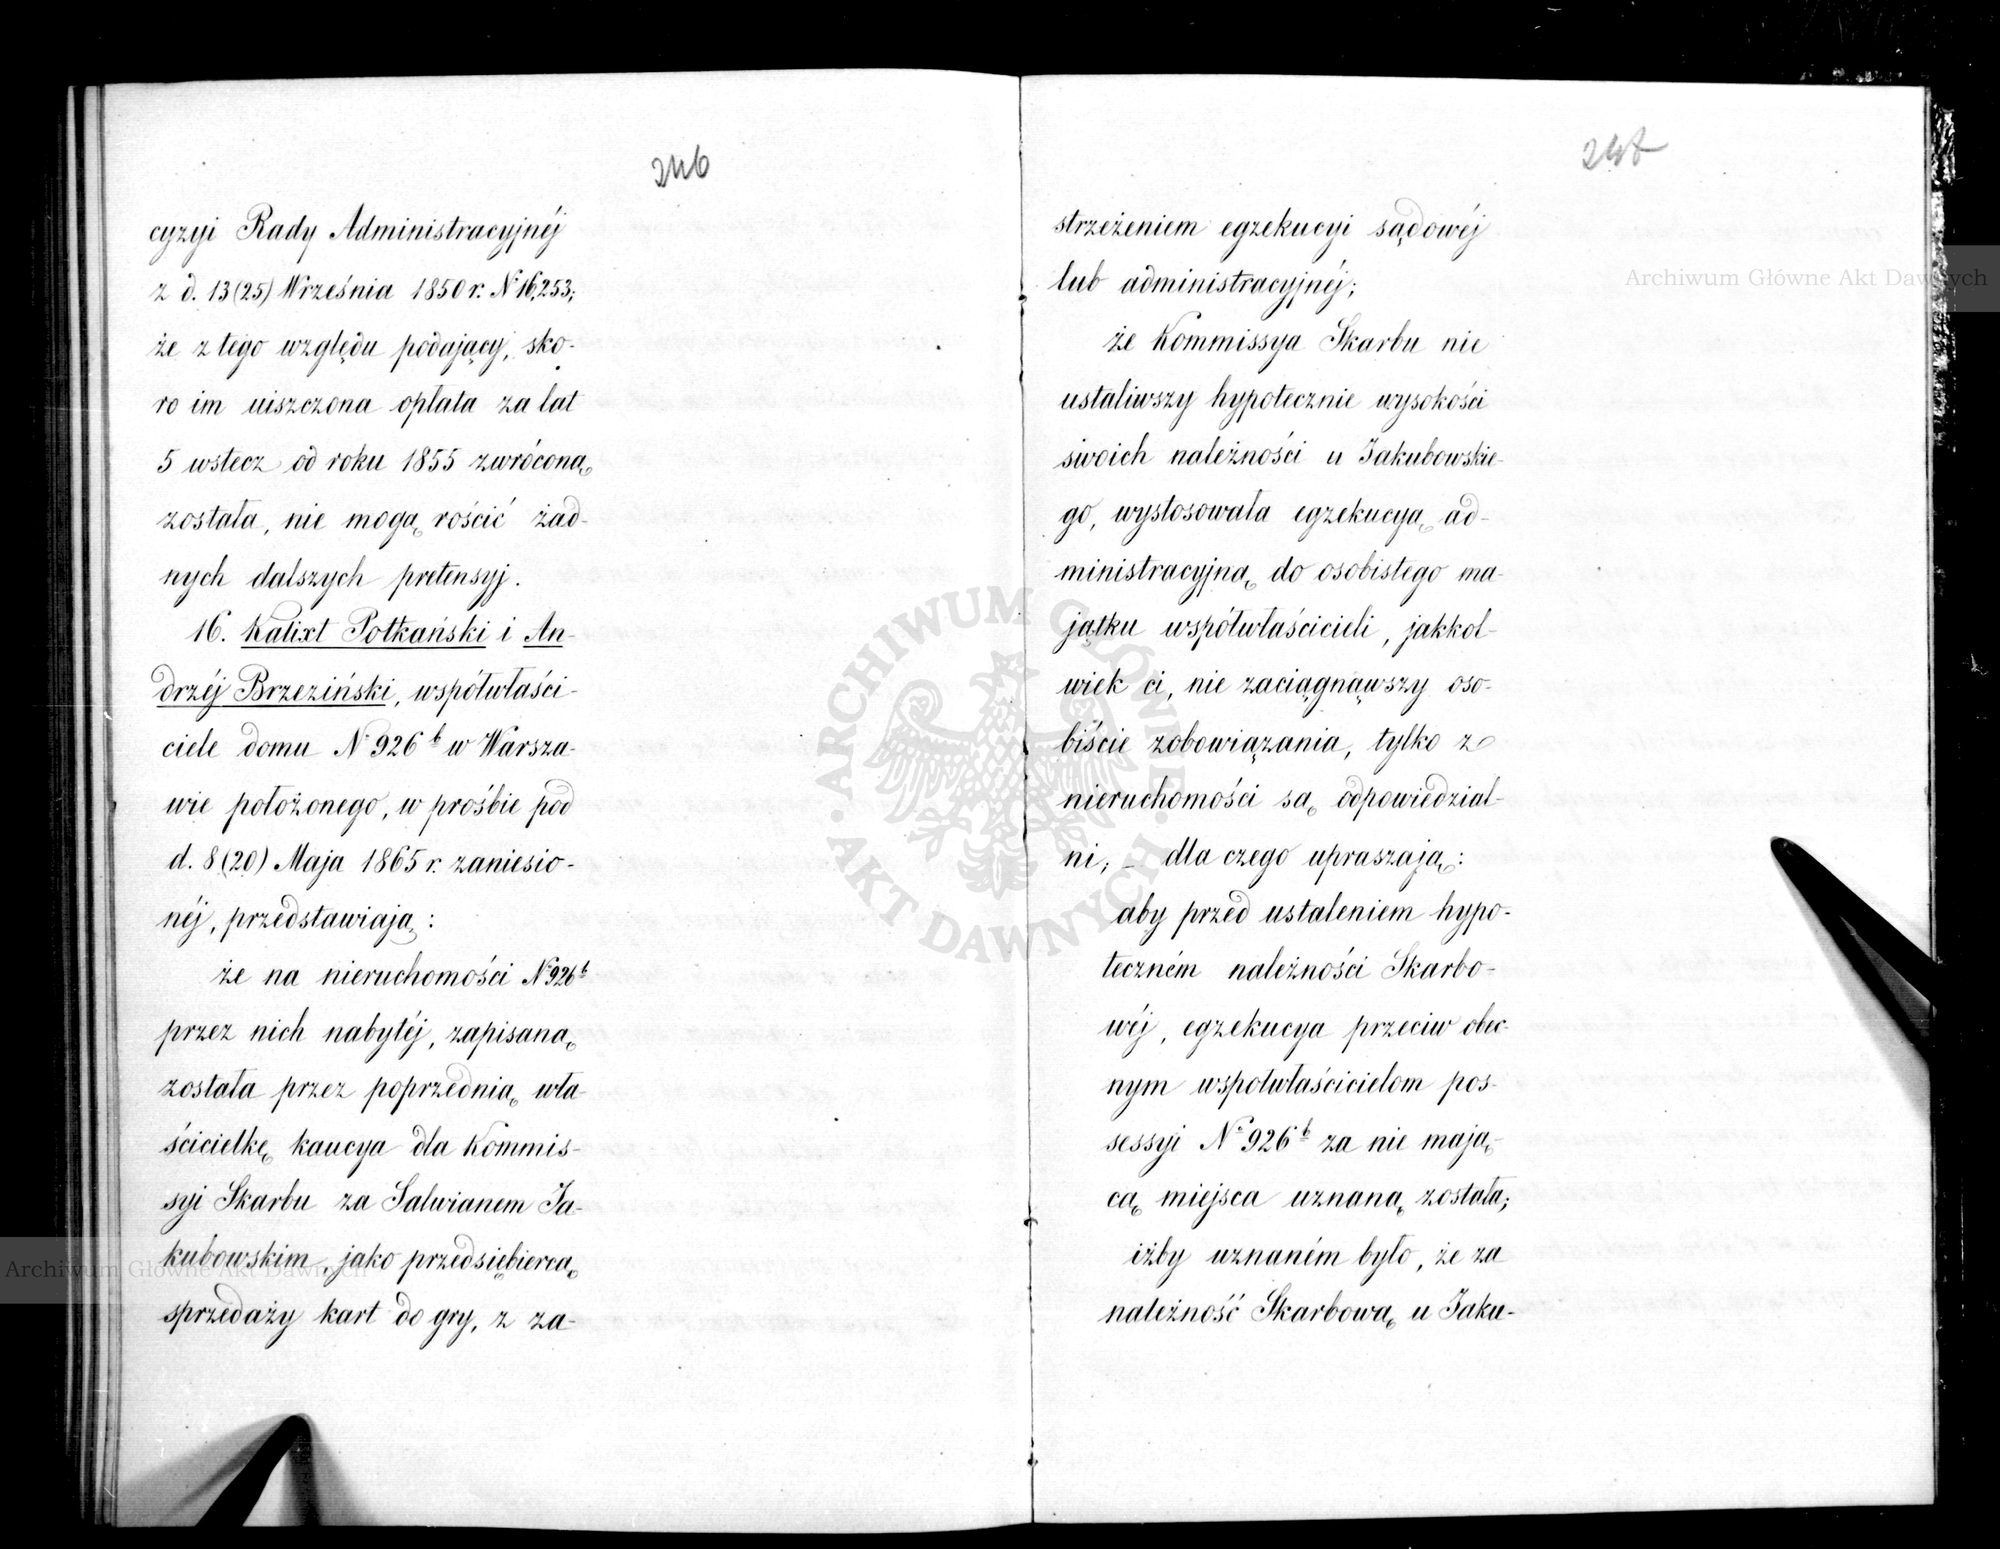 246
cyzyi Rady Administracyjnéj
z d. 13 (25) Września 1850 r. N 16,253;
że z tego względu podający, sko-
ro im uiszczona opłata za lat
5 wstecz od roku 1855 zwróconą
została, nie mogą rościć żad-
nych dalszych pretensyj.
16. Kalixt Potkański i An-
drzéj Brzeziński, współwłaści-
ciele domu N 926 b w Warsza-
wie położonego, w prośbie pod
d. 8 (20) Maja 1865 r. zaniesio-
néj, przedstawiają:
że na nieruchomości N 926 b
przez nich nabytéj, zapisaną
została przez poprzednią wła-
ścicielkę kaucya dla Kommis-
syi Skarbu za Salwianem Ja-
kubowskim, jako przedsiębiercą
sprzedaży kart do gry, z za-
247
strzeżeniem egzekucyi sądowéj
lub administracyjnéj;
że Kommissya Skarbu nie
ustaliwszy hypotecznie wysokości
swoich należności u Jakubowskie-
go, wystosowała egzekucyą ad-
ministracyjną do osobistego ma-
jątku współwłaścicieli, jakkol-
wiek ci, nie zaciągnąwszy oso-
biście zobowiązania, tylko z
nieruchomości są odpowiedzial-
ni; – dla czego upraszają:
aby przed ustaleniem hypo-
teczném należności Skarbo-
wéj, egzekucya przeciw obec-
nym współwłaścicielom pos-
sessyi N 926 b za nie mają-
cą miejsca uznaną została;
iżby uznaném było, że za
należność Skarbową u Jaku-
Archiwum Główne Akt Dawnych
Archiwum Główne Akt Dawnych
ARCHIWUM GŁÓWNE AKT DAWNYCH